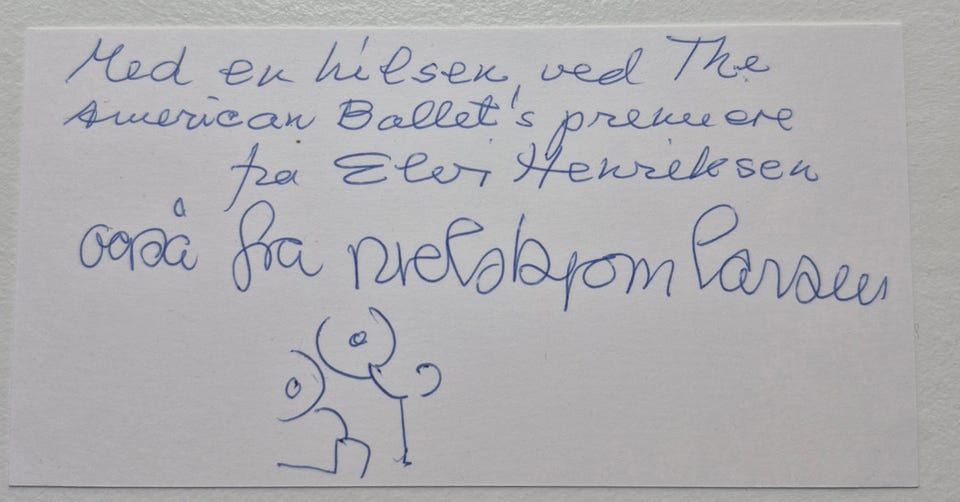 Med en hilsen, ved The
American Ballet's premiere
fra Elvi Henriksen
også fra niels bjørn larsen